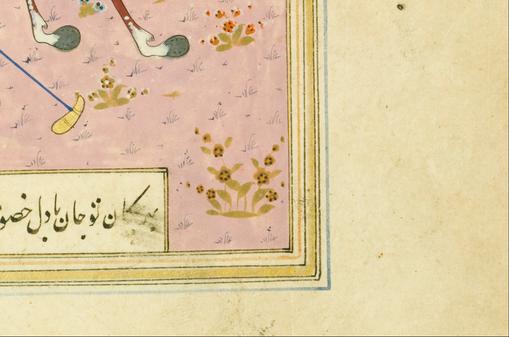 کان تو جان با دل خصو